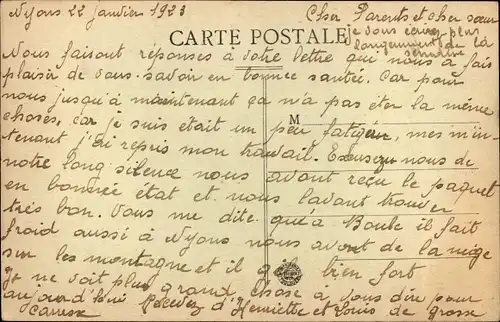 Nyons 22 janvier 1923
Cher Parents et cher sœur
CARTE POSTALE
je vous écrirez plus
longuement de la
semaine
Nous faisont réponses à votre lettre qui nous à fais
plaisir de vous savoir en bonnee santée. Car pour
nous jusqu'à maintenant ça m'a pas éter la même
choses, car je suis était un peu fatiguer, mes m'in-
M
tenant j'ai repris mon travail. Excusez nous de
notre long silence nous avont reçu le paquet
en bonnée état et nous l'avont trouver
très bon. Vous me dite qu'à Boule il fait
froid aussi à Nyons nous avont de la neige
sur les montagne et il gèle bien fort
Je ne voit plus grand chose à vous dire pour
aujourd'hui Recevez d'Henriette et Louis de grosse
Caresse